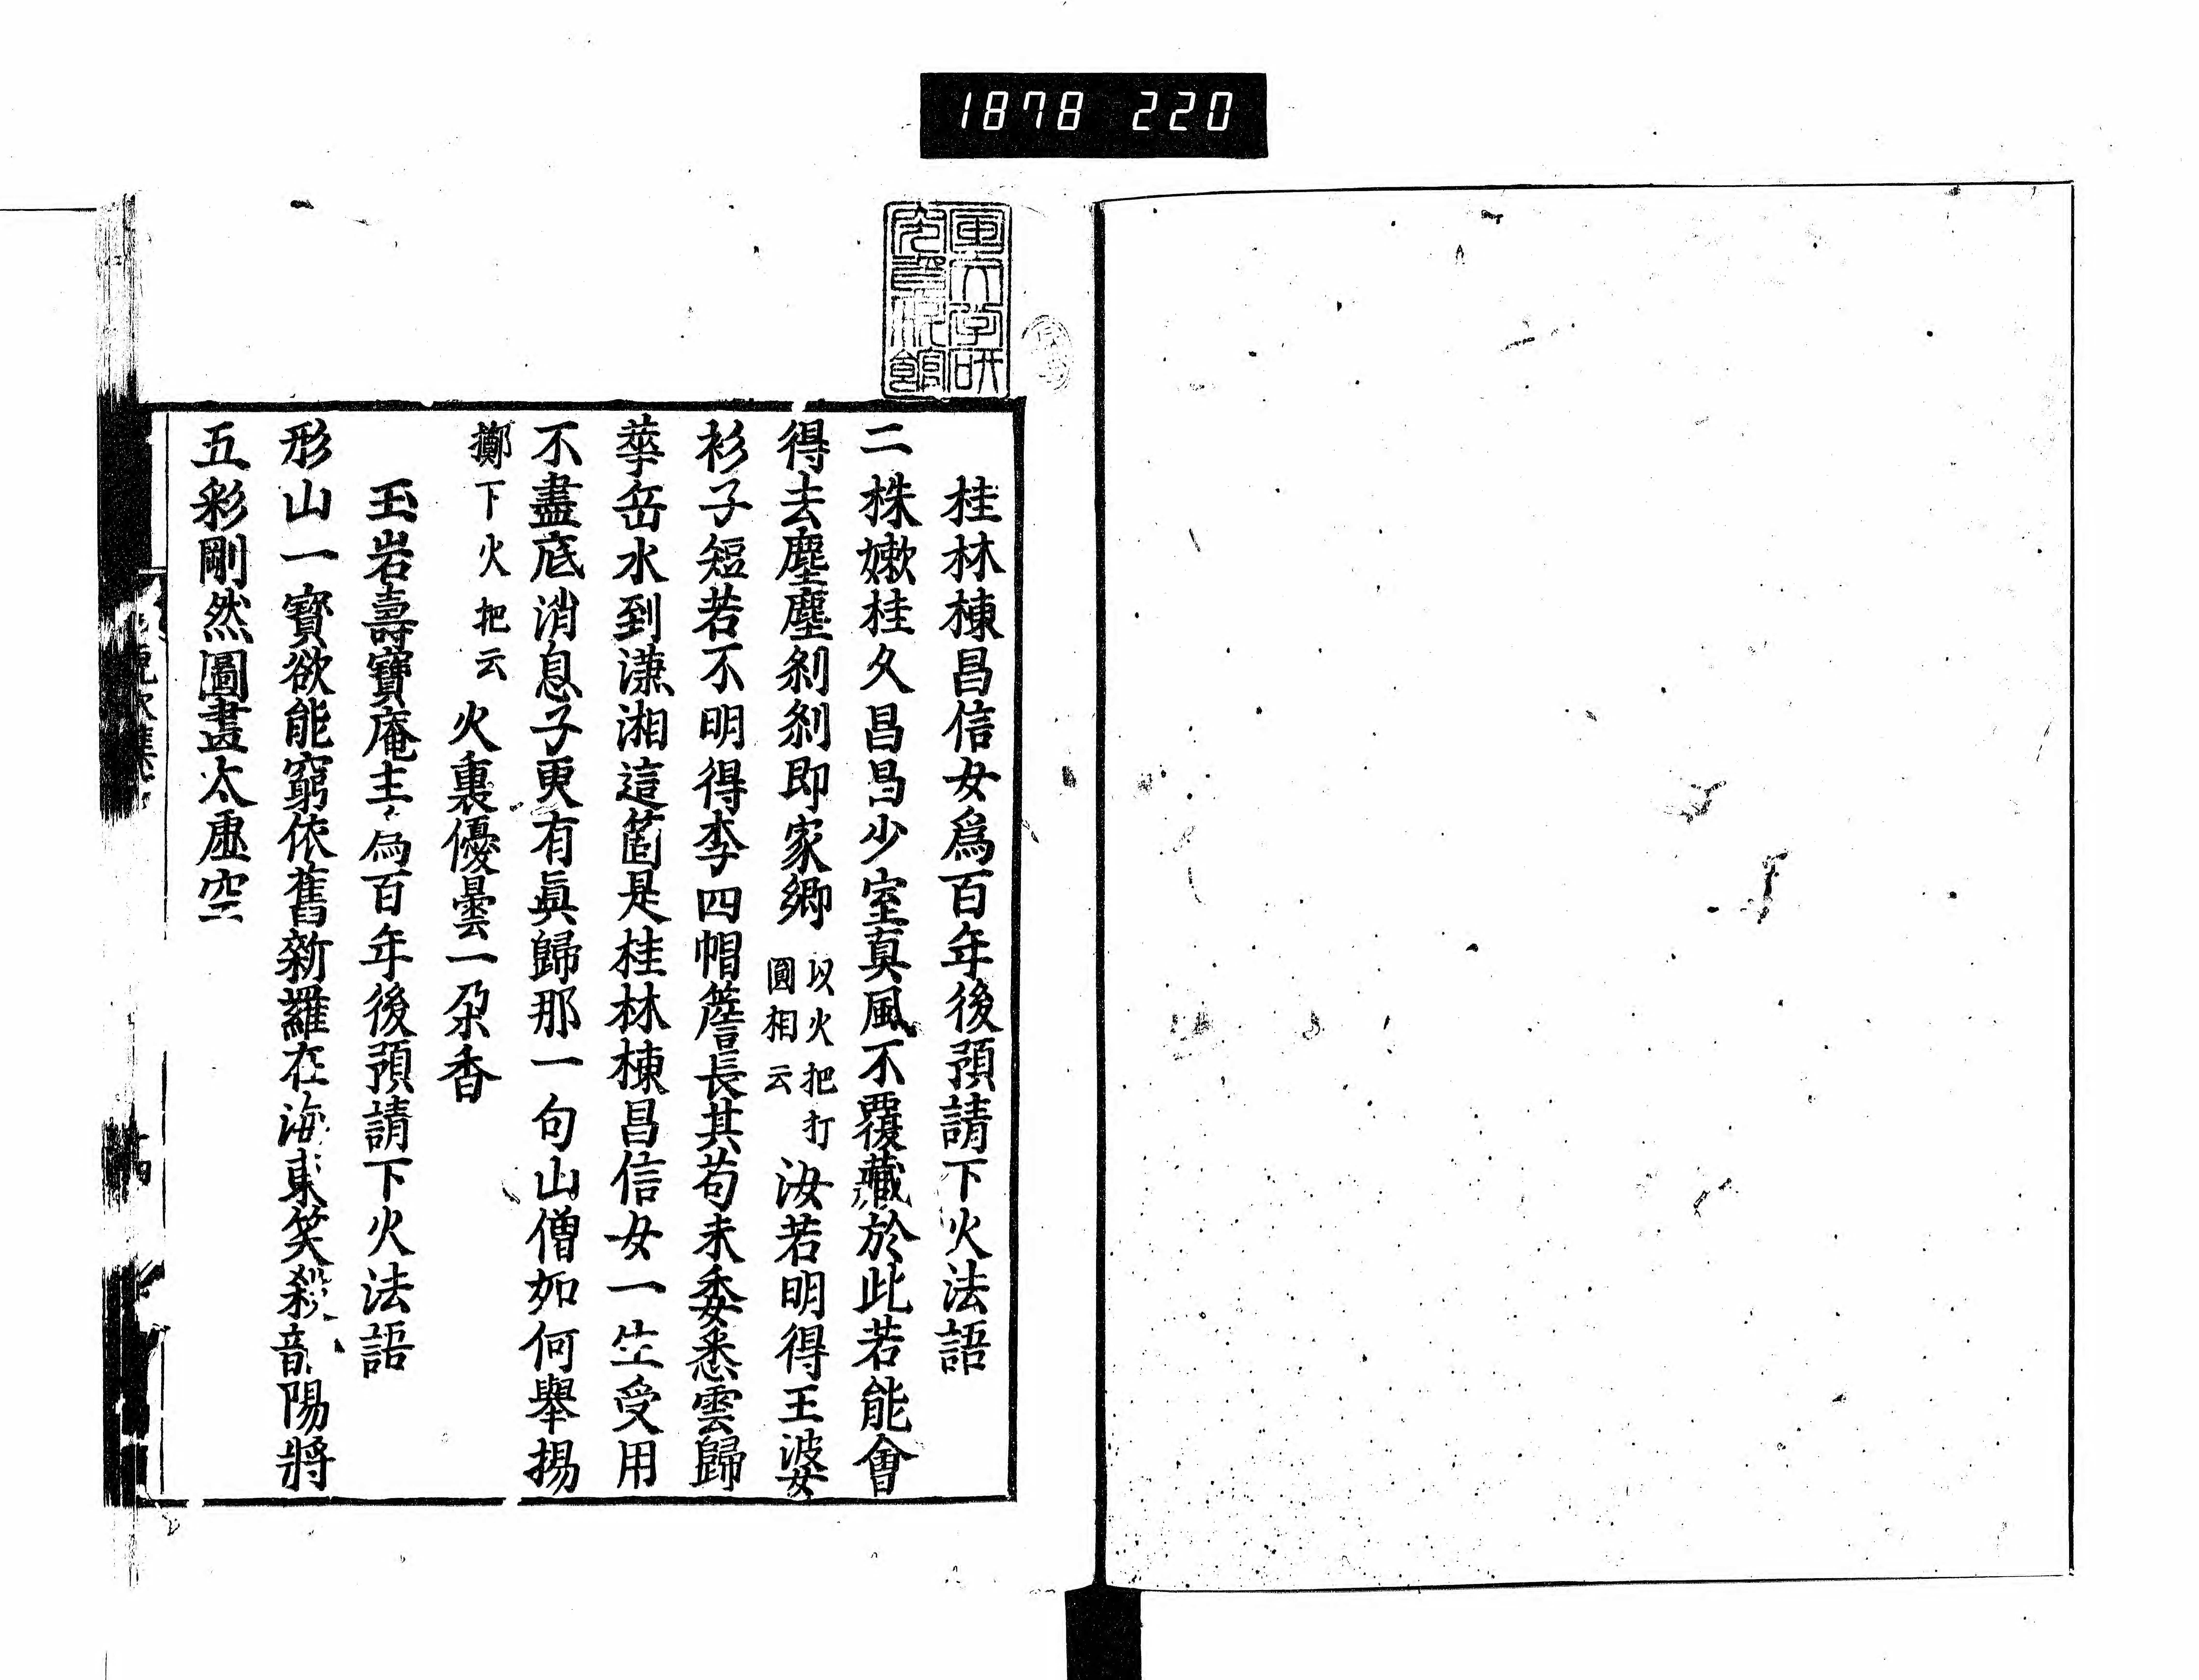 1878 220
国文学研
究資料館
桂林棟昌信女爲百年後預請下火法語
二株嫩桂久昌昌少室真風不覆藏於此若能會
得去塵塵刹刹即家鄉以火把打圓相云汝若明得王婆
衫子短若不明得李四帽簷長其苟未委悉雲歸
華岳水到瀟湘這箇是桂林棟昌信女一生受用
不盡底消息子更有眞歸那一句山僧如何舉揚
擲下火把云火裏優曇一朶香
玉岩壽寶庵主爲百年後預請下火法語
形山一寳欲能窮依舊新羅在海東笑殺韶陽將
五彩剛然圖畫太虛空